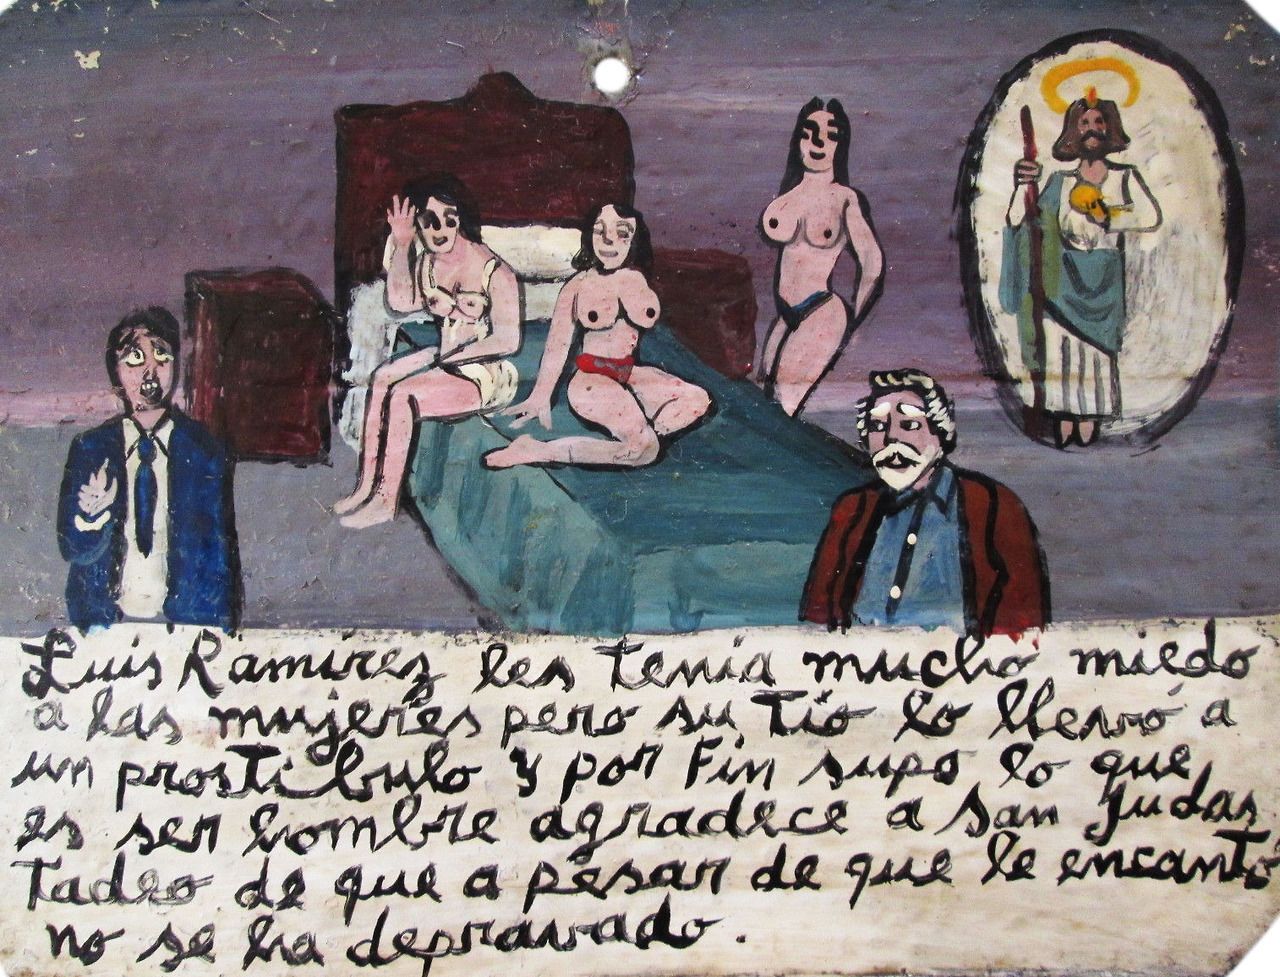 Luis Ramirez les tenia mucho miedo
a las mujeres pero su Tio lo llevó a
un prostibulo y por Fin supo lo que
es ser hombre agradece a San Judas
Tadeo de que a pesar de que le encantó
no se ha depravado.